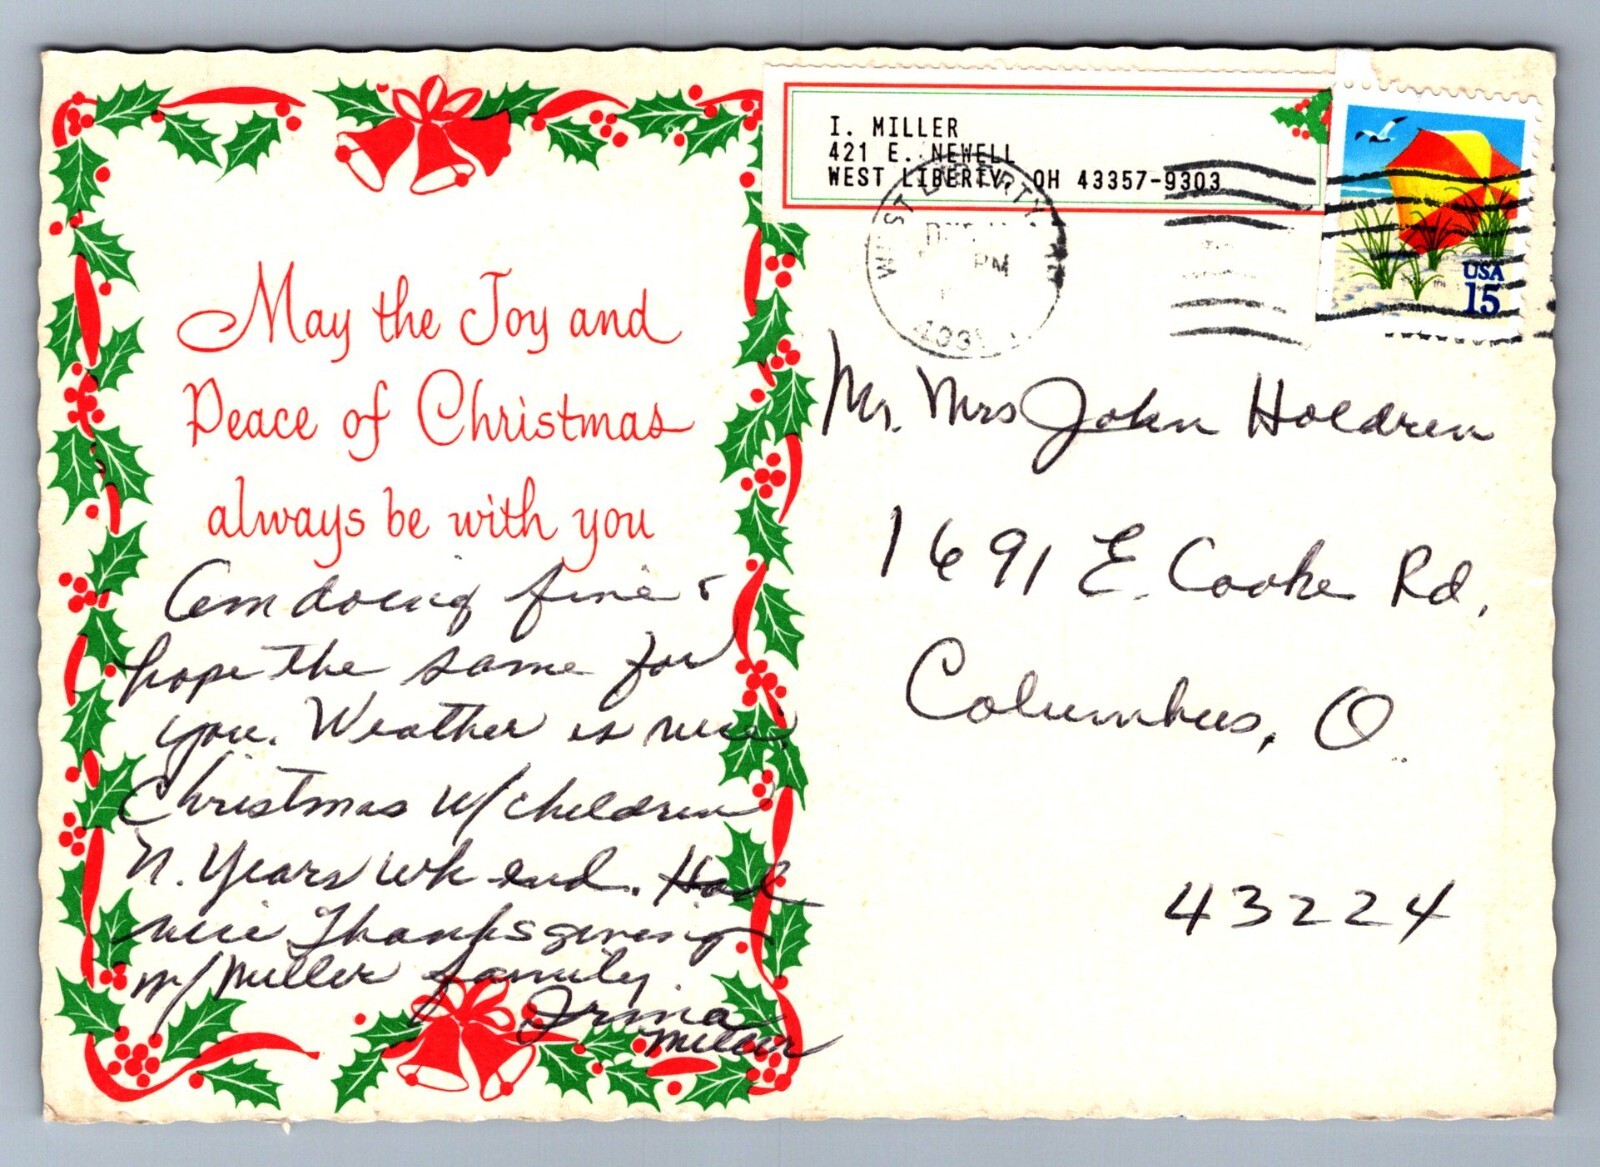 May the Joy and
Peace of Christmas
always be with you
Am doing fine &
hope the same for
you. Weather is nice.
Christmas w/ children
N. Years wk end. Had
nice Thanksgiving
w/ Miller family.
Irma
Miller
I. MILLER
421 E. NEWELL
WEST LIBERTY, OH 43357-9303
WEST LIBERTY
PM
USA
15
Mr. Mrs John Holdren
1691 E. Cooke Rd,
Columbus, O.
43224